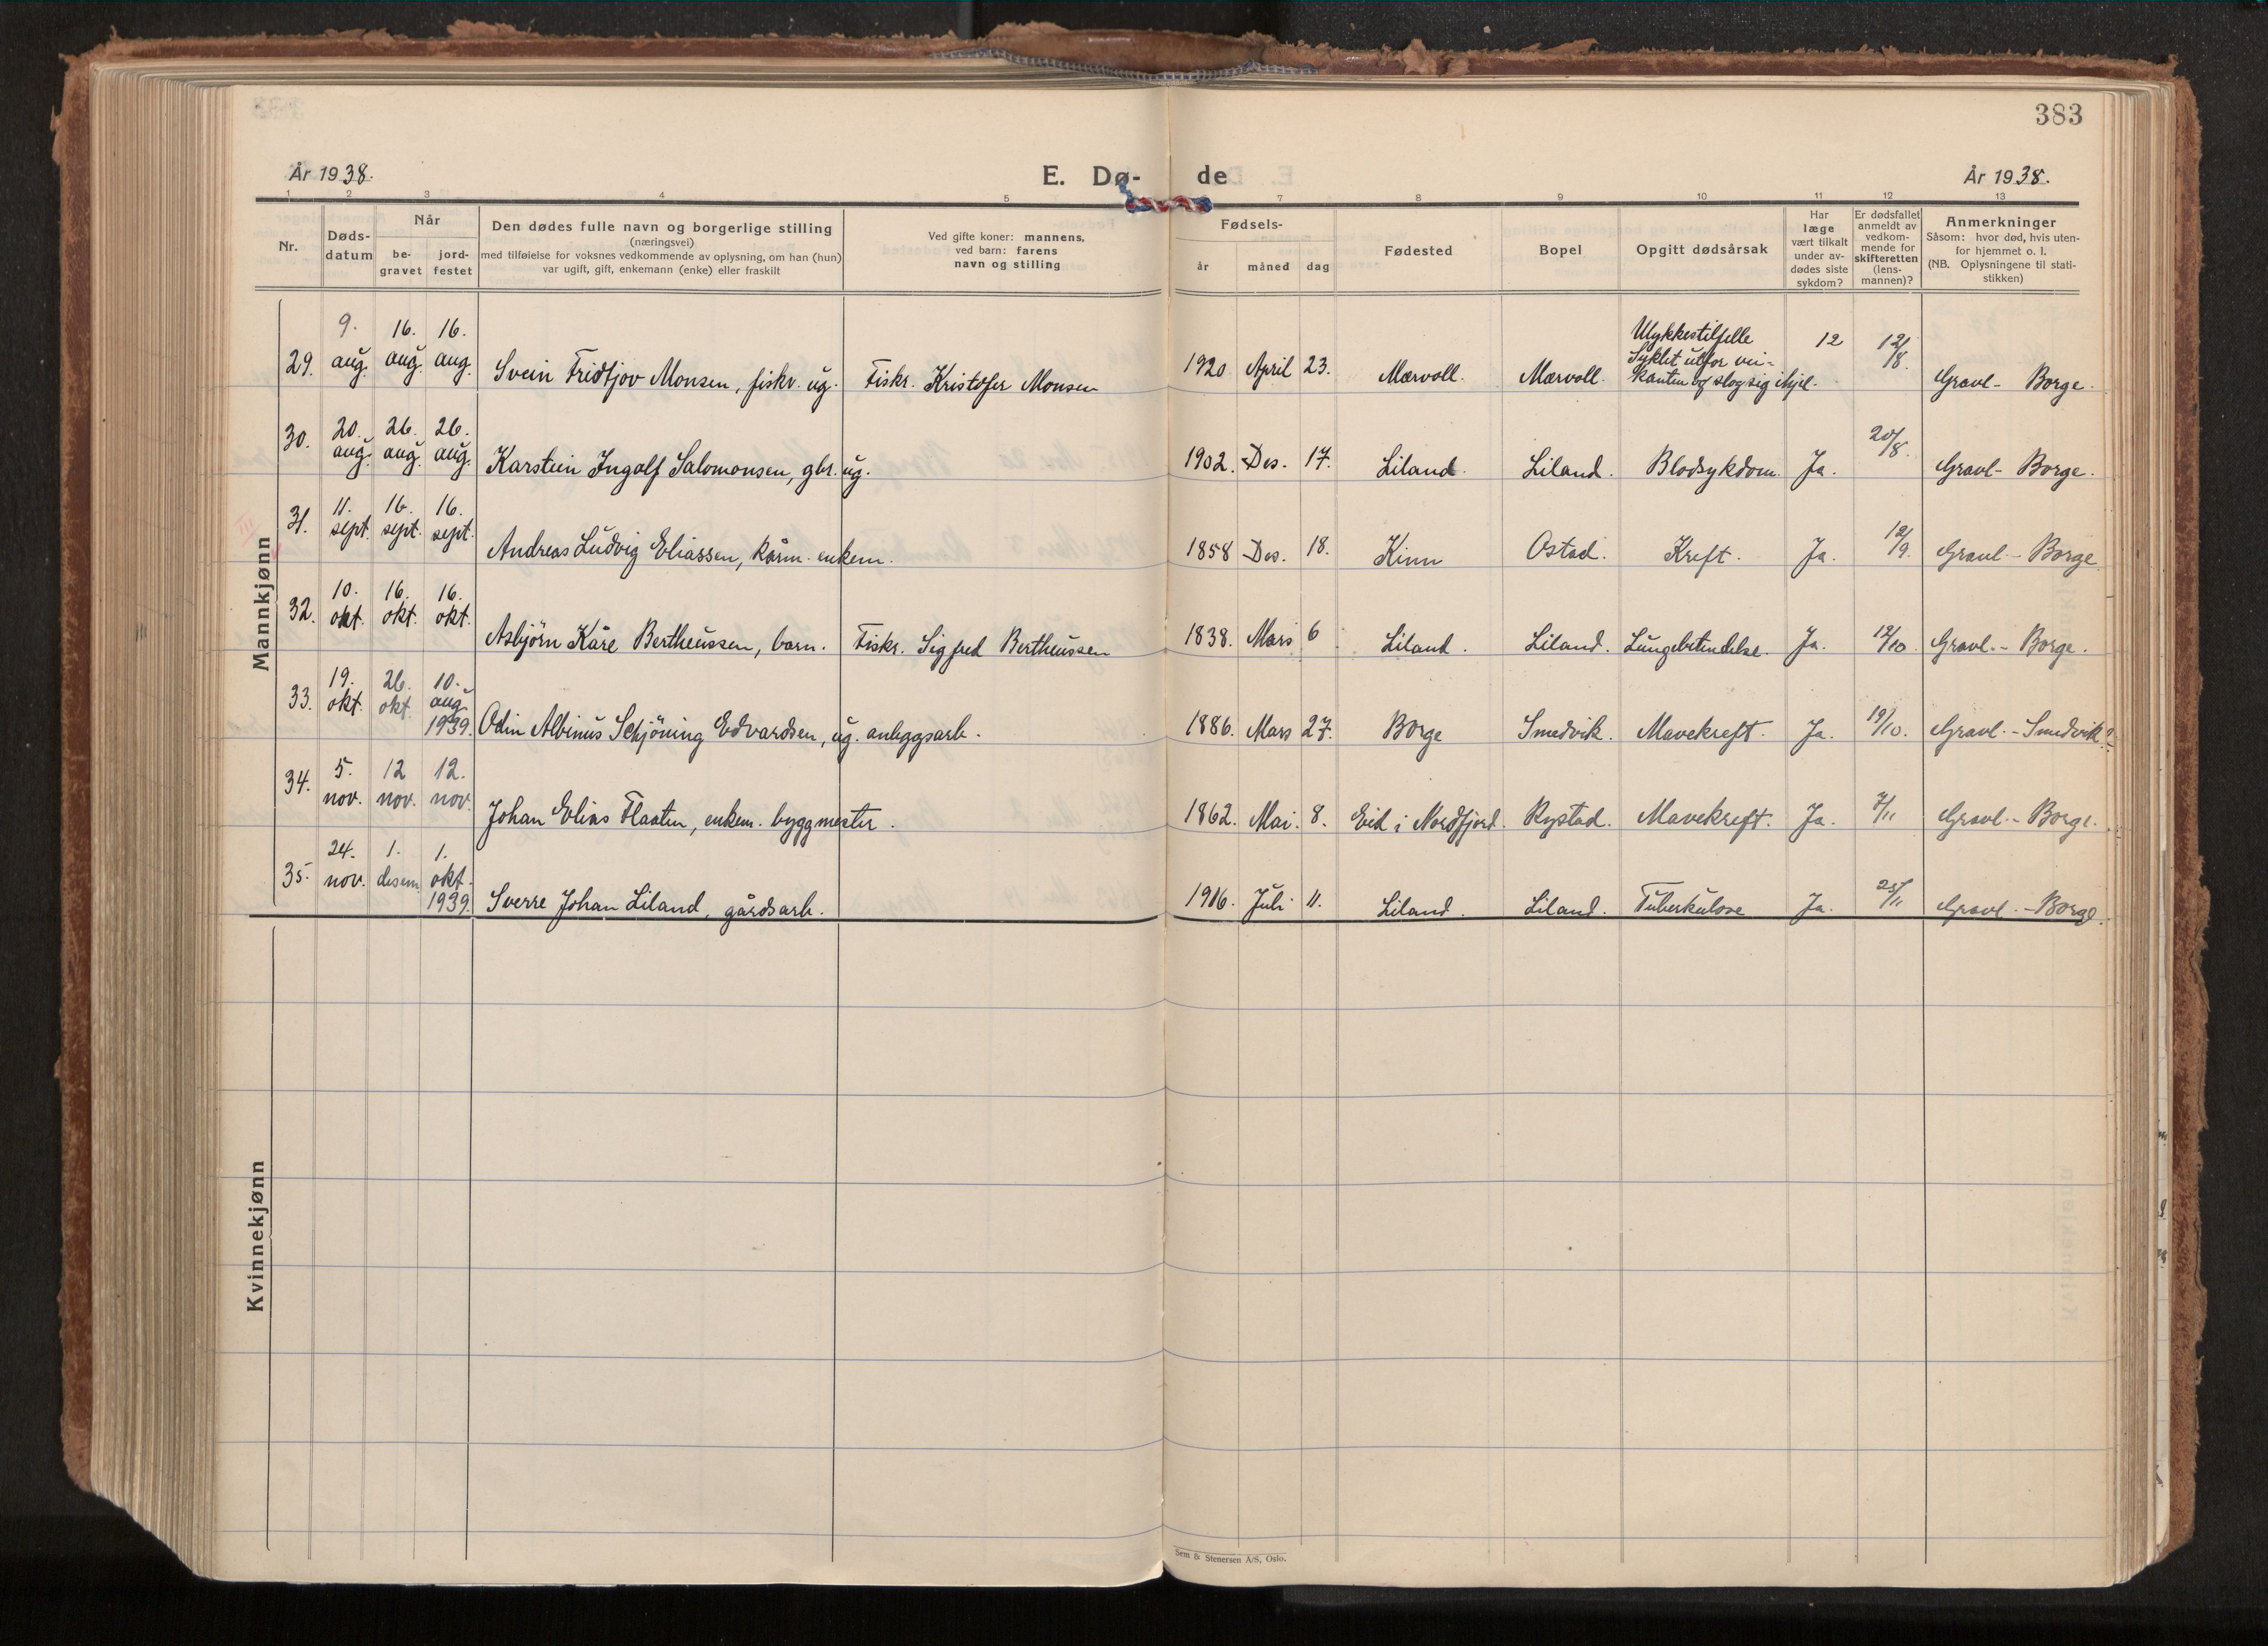 383
År 1938.
E. Dø-
de
År 1938.
1 2 3 4 5 7 8 9 10 11 12 13
Nr.
Døds-
datum
Når
be-
gravet
jord-
festet
Den dødes fulle navn og borgerlige stilling
(næringsvei)
med tilføielse for voksnes vedkommende av oplysning, om han (hun)
var ugift, gift, enkemann (enke) eller fraskilt
Ved gifte koner: mannens,
ved barn: farens
navn og stilling
Fødsels-
år måned dag
Fødested
Bopel
Opgitt dødsårsak
Har
læge
vært tilkalt
under av-
dødes siste
sykdom?
Er dødsfallet
anmeldt av
vedkom-
mende for
skifteretten
(lens-
mannen)?
Anmerkninger
Såsom: hvor død, hvis uten-
for hjemmet o. l.
(NB. Oplysningene til stati-
stikken)
Mannkjønn
29. 9. aug. 16. aug. 16. aug. Svein Fridtjov Monsen, fiskr. ug. Fiskr. Kristofer Monsen 1920 April 23. Mærvoll. Mærvoll. Ulykkestilfelle
Syklet utfor vei-
kanten og slog sig ihjel. 12 12/8. Gravl- Borge.
30. 20. aug. 26. aug. 26. aug. Karstein Ingolf Salomonsen, gbr. ug. 1902. Des. 17. Liland. Liland. Blodsykdom. Ja. 20/8. Gravl- Borge.
31. 11. sept. 16. sept. 16. sept. Andreas Ludvig Eliassen, kårm. enkem. 1858 Des. 18. Kinn Ostad. Kreft. Ja. 12/9. Gravl- Borge
32. 10. okt. 16. okt. 16. okt. Asbjörn Kåre Bertheussen, barn. Fiskr. Sigfred Bertheussen 1838. Mars 6 Liland. Liland. Lungebetendelse. Ja. 12/10 Gravl.- Borge.
33. 19. okt. 26. okt. 10. aug. 1939. Odin Albinus Schjöning Edvardsen, ug. anleggsarb. 1886. Mars 27. Borge Smedvik. Mavekreft. Ja. 19/10. Gravl.- Smedvik?
34. 5. nov. 12 nov. 12. nov. Johan Elias Flaaten, enkem. byggmester. 1862. Mai. 8. Eid i Nordfjord. Rystad. Mavekreft. Ja. 7/11 Gravl.- Borge.
35. 24. nov. 1. desem. 1. okt. 1939. Sverre Johan Liland, gårdsarb. 1916. Juli 11. Liland. Liland. Tuberkulose Ja. 25/11 Gravl.- Borge.
Kvinnekjønn
Sem & Stenersen A/S, Oslo.